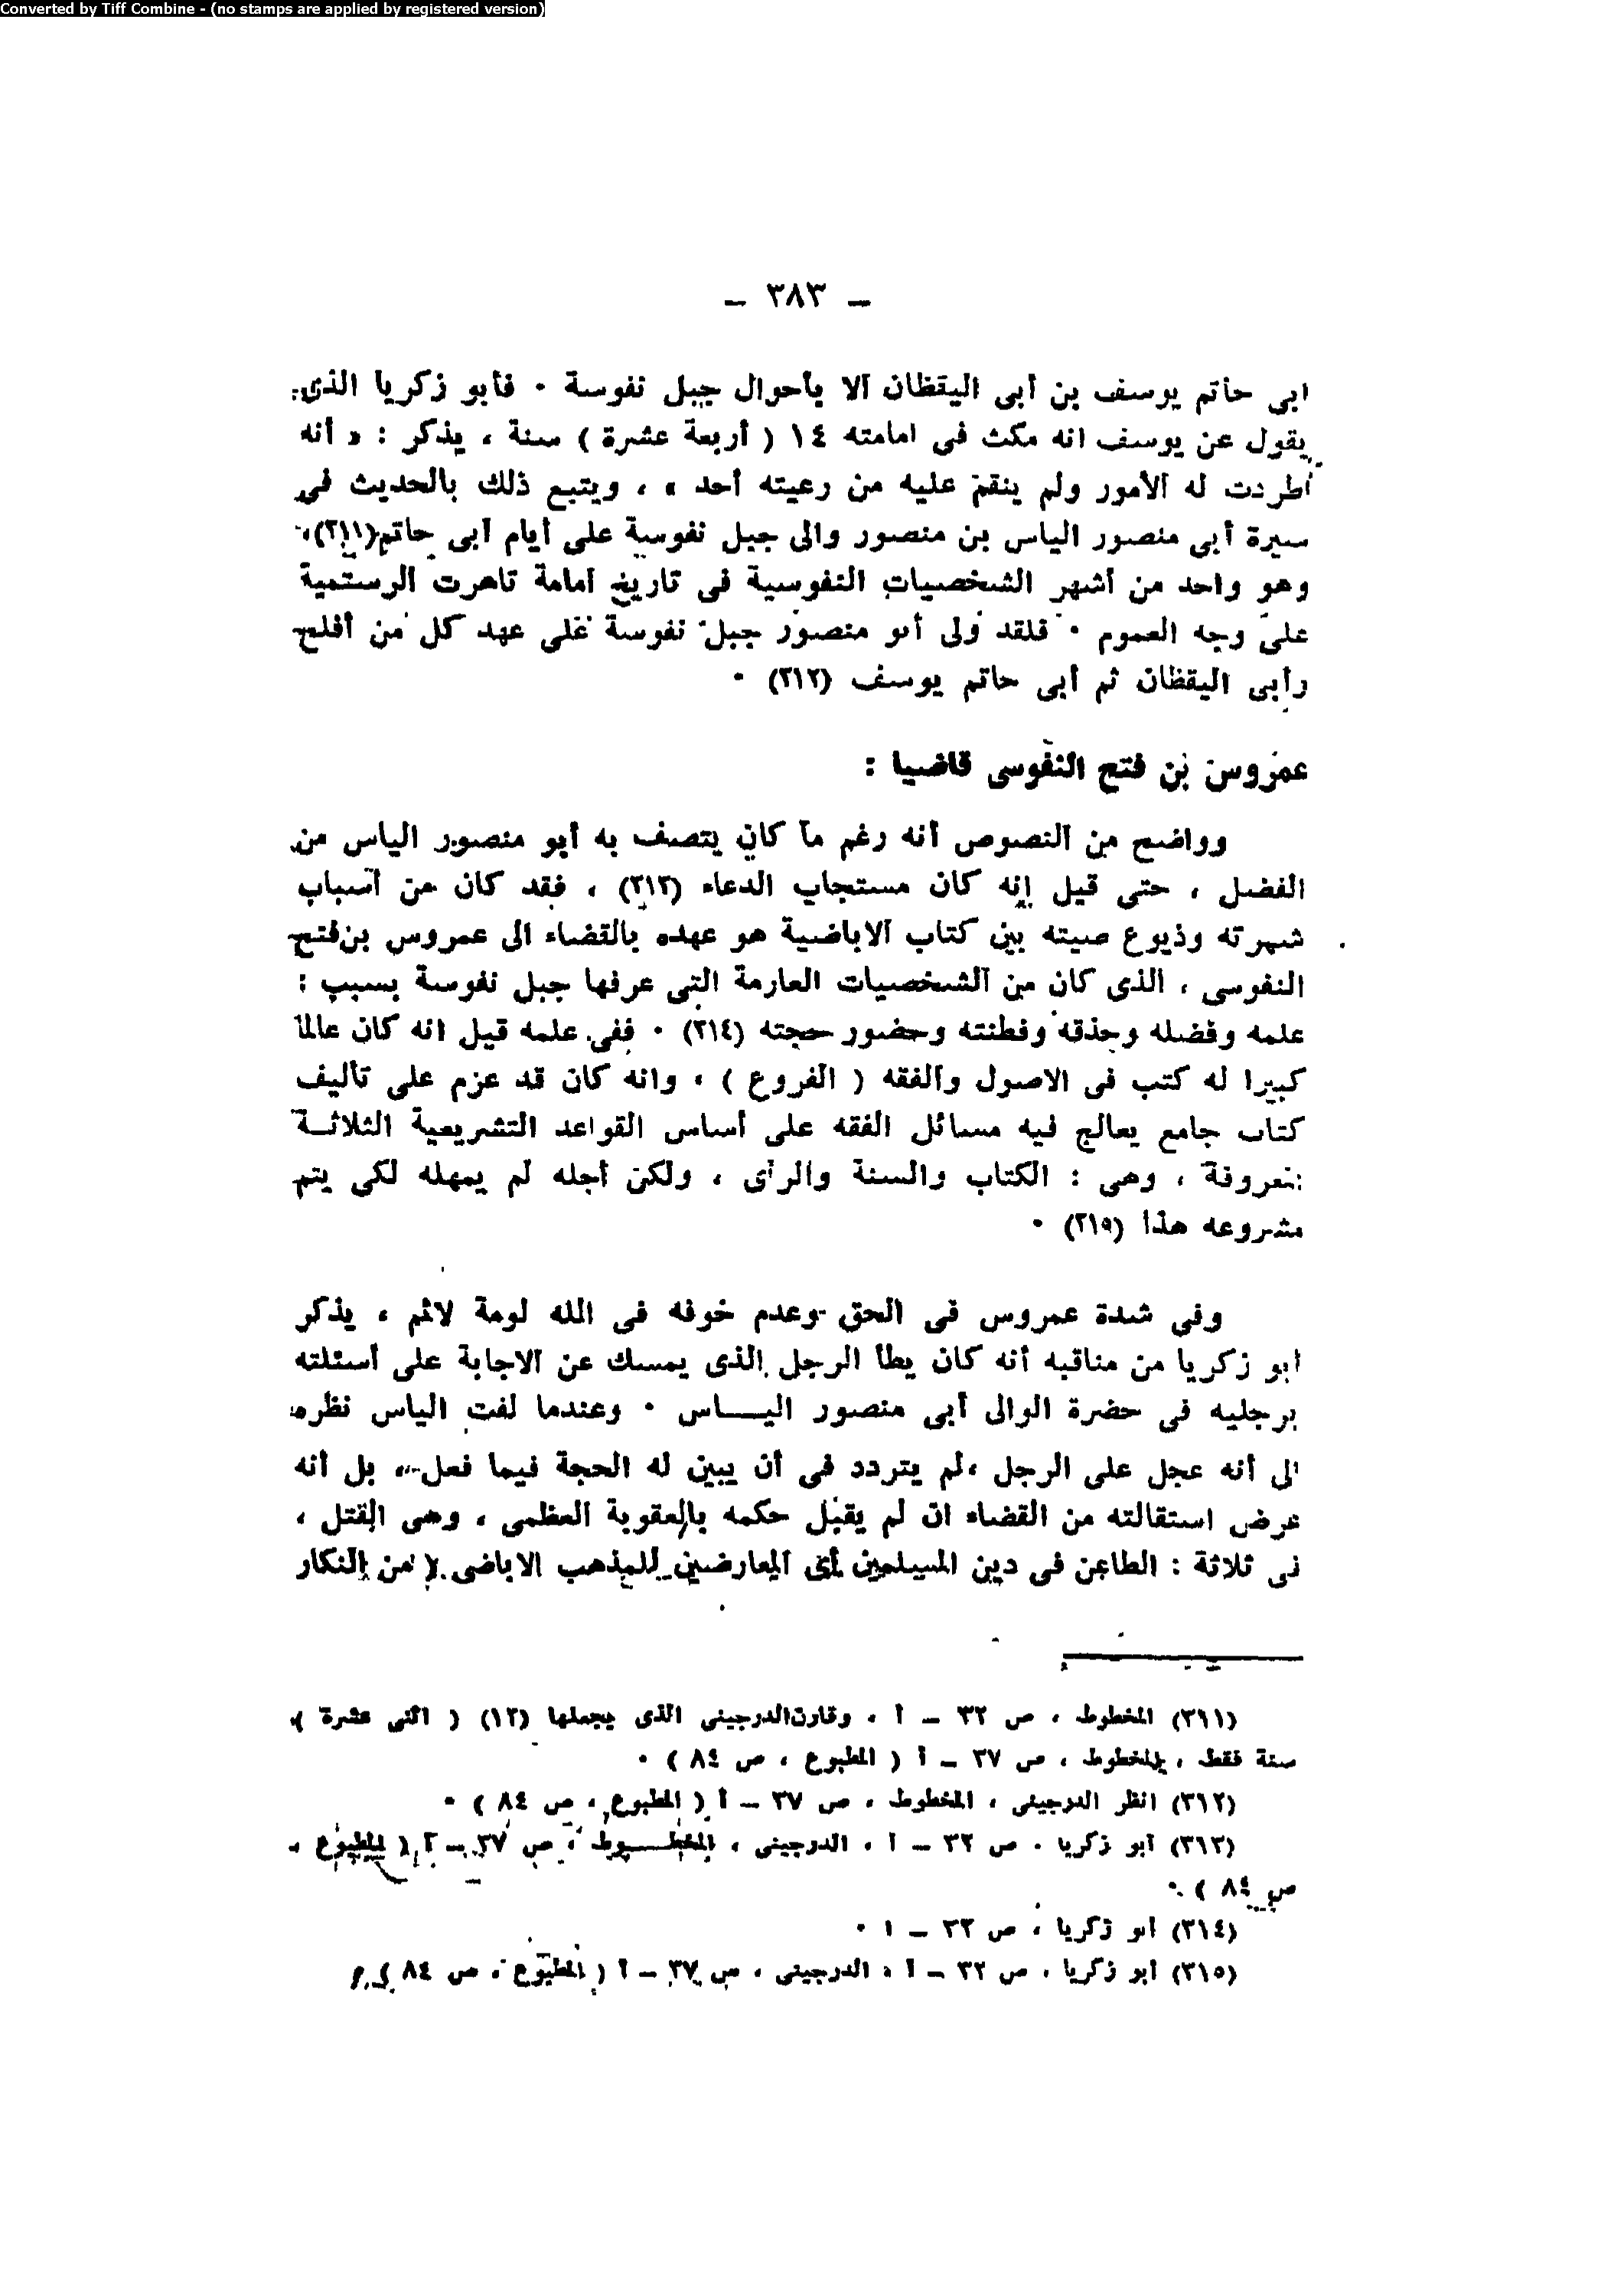 Converted by Tiff Combine - (no stamps are applied by registered version)
— ٣٨٣ —
ابى حاتم يوسف بن أبى اليقظان الا بأحوال جبل نفوسة ٠ فأبو زكريا الذى
يقول عن يوسف انه مكث فى امامته ١٤ ( أربعة عشرة ) سنة ، يذكر : « أنه
أطردت له الأمور ولم ينقم عليه من رعيته أحد » ، ويتبع ذلك بالحديث فى
سيرة أبى منصور الياس بن منصور والى جبل نفوسة على أيام أبى حاتم(٢١١)،
وهو واحد من أشهر الشخصيات النفوسية فى تاريخ امامة تاهرت الرستمية
على وجه العموم ٠ فلقد ولى أبو منصور جبل نفوسة على عهد كل من أفلح
رأبى اليقظان ثم أبى حاتم يوسف (٢١٢) ٠
عمروس بن فتح النفوسى قاضيا :
وواضح من النصوص أنه رغم ما كان يتصف به أبو منصور الياس من
الفضل ، حتى قيل إنه كان مستجاب الدعاء (٢١٣) ، فقد كان من أسباب
شهرته وذيوع صيته بين كتاب الاباضية هو عهده بالقضاء الى عمروس بن فتح
النفوسى ، الذى كان من الشخصيات العارمة التى عرفها جبل نفوسة بسبب :
علمه وفضله وحذقه وفطنته وحضور حجته (٢١٤) ٠ ففى علمه قيل انه كان عالما
كبيرا له كتب فى الاصول والفقه ( الفروع ) ، وانه كان قد عزم على تأليف
كتاب جامع يعالج فيه مسائل الفقه على أساس القواعد التشريعية الثلاثــة
المعروفة ، وهى : الكتاب والسنة والرأى ، ولكن أجله لم يمهله لكى يتم
مشروعه هذا (٢١٥) ٠
وفى شدة عمروس فى الحق وعدم خوفه فى الله لومة لائم ، يذكر
ابو زكريا من مناقبه أنه كان يطأ الرجل الذى يمسك عن الاجابة على أسئلته
برجليه فى حضرة الوالى أبى منصور اليـــاس ٠ وعندما لفت الياس نظره
الى أنه عجل على الرجل ،لم يتردد فى أن يبين له الحجة فيما فعل ، بل أنه
عرض استقالته من القضاء ان لم يقبل حكمه بالعقوبة العظمى ، وهى القتل ،
فى ثلاثة : الطاعن فى دين المسلمين أى المعارضين للمذهب الاباضى ( من النكار
(٢١١) المخطوط ، ص ٣٢ — أ ، وقارن الدرجينى الذى يجعلها (١٢) ( اثنى عشرة )
سنة فقط ، المخطوط ، ص ٣٧ — أ ( المطبوع ، ص ٨٤ ) ٠
(٢١٢) انظر الدرجينى ، المخطوط ، ص ٣٧ — أ ( المطبوع ، ص ٨٤ ) ٠
(٢١٣) أبو زكريا ، ص ٣٢ — أ ، الدرجينى ، المخطــوط ، ص ٣٧ — أ ( المطبوع ،
ص ٨٤ ) ٠
(٢١٤) أبو زكريا ، ص ٣٢ — أ ٠
(٢١٥) أبو زكريا ، ص ٣٢ — أ ، الدرجينى ، ص ٣٧ — أ ( المطبوع ، ص ٨٤ ) ٠